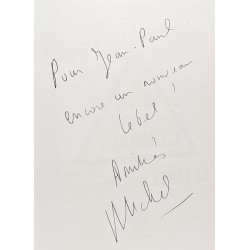 Pour Jean-Paul
encore un nouveau
label !
Amitiés
Michel